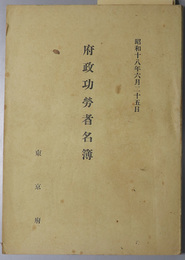 昭和十八年六月二十五日
府政功労者名簿
東京府